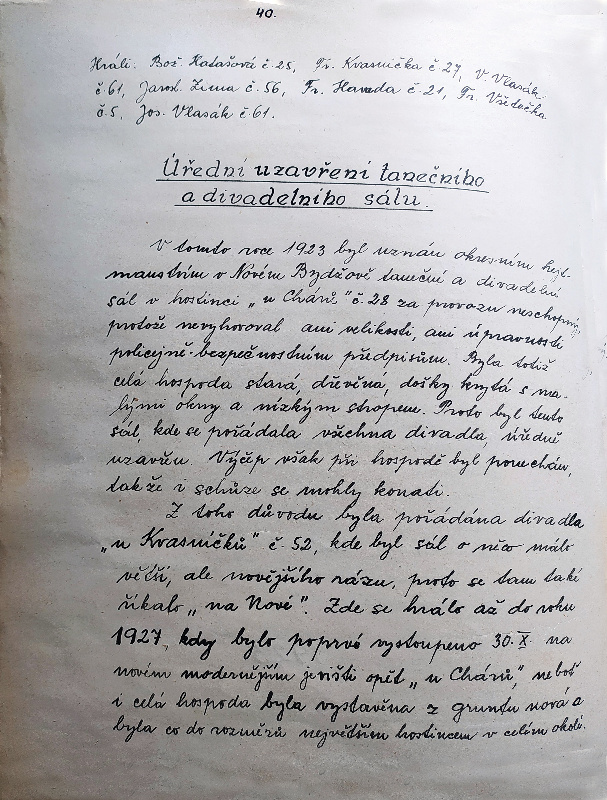 40.
Hráli: Bož. Hatašová č. 25, Fr. Kvasnička č. 27, V. Vlasák
č. 61, Jarosl. Zima č. 56, Fr. Havrda č. 21, Fr. Všetečka
č. 5, Jos. Vlasák č. 61.
Úřední uzavření tanečního
a divadelního sálu.
V tomto roce 1923 byl uznán okresním hejt-
manstvím v Novém Bydžově taneční a divadelní
sál v hostinci „u Chárů" č. 28 za provozu neschopný,
protože nevyhovoval ani velikostí, ani úpravností
policejně-bezpečnostním předpisům. Byla totiž
celá hospoda stará, dřevěná, došky krytá s ma-
lými okny a nízkým stropem. Proto byl tento
sál, kde se pořádala všechna divadla, úředně
uzavřen. Výčep však při hospodě byl ponechán,
takže i schůze se mohly konati.
Z toho důvodu byla pořádána divadla
„u Kvasničků" č 52, kde byl sál o něco málo
větší, ale novějšího rázu, proto se tam také
říkalo „na Nové". Zde se hrálo až do roku
1927, kdy bylo poprvé vystoupeno 30. X. na
novém modernějším jevišti opět „u Chárů", neboť
i celá hospoda byla vystavěna z gruntu nová a
byla co do rozměrů největším hostincem v celém okolí.